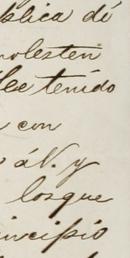 blica dé
olesten
se tenido
con
á V. y
losque
incipio